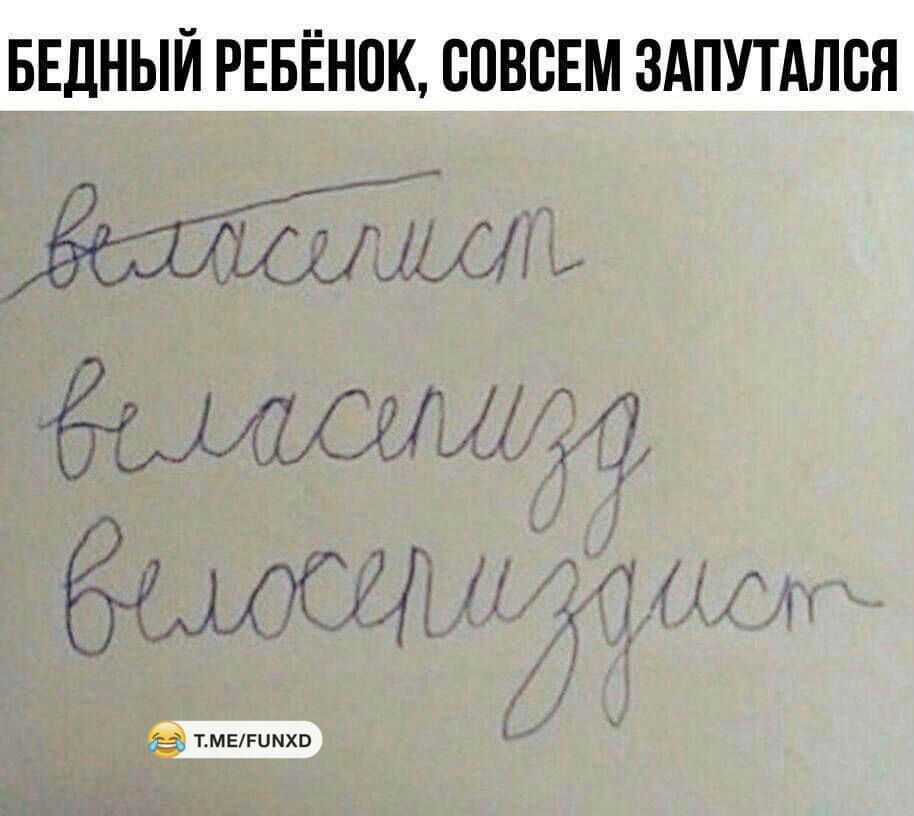 БЕДНЫЙ РЕБЁНОК, СОВСЕМ ЗАПУТАЛСЯ
веласепист
веласепизд
велосепиздист
T.ME/FUNXD